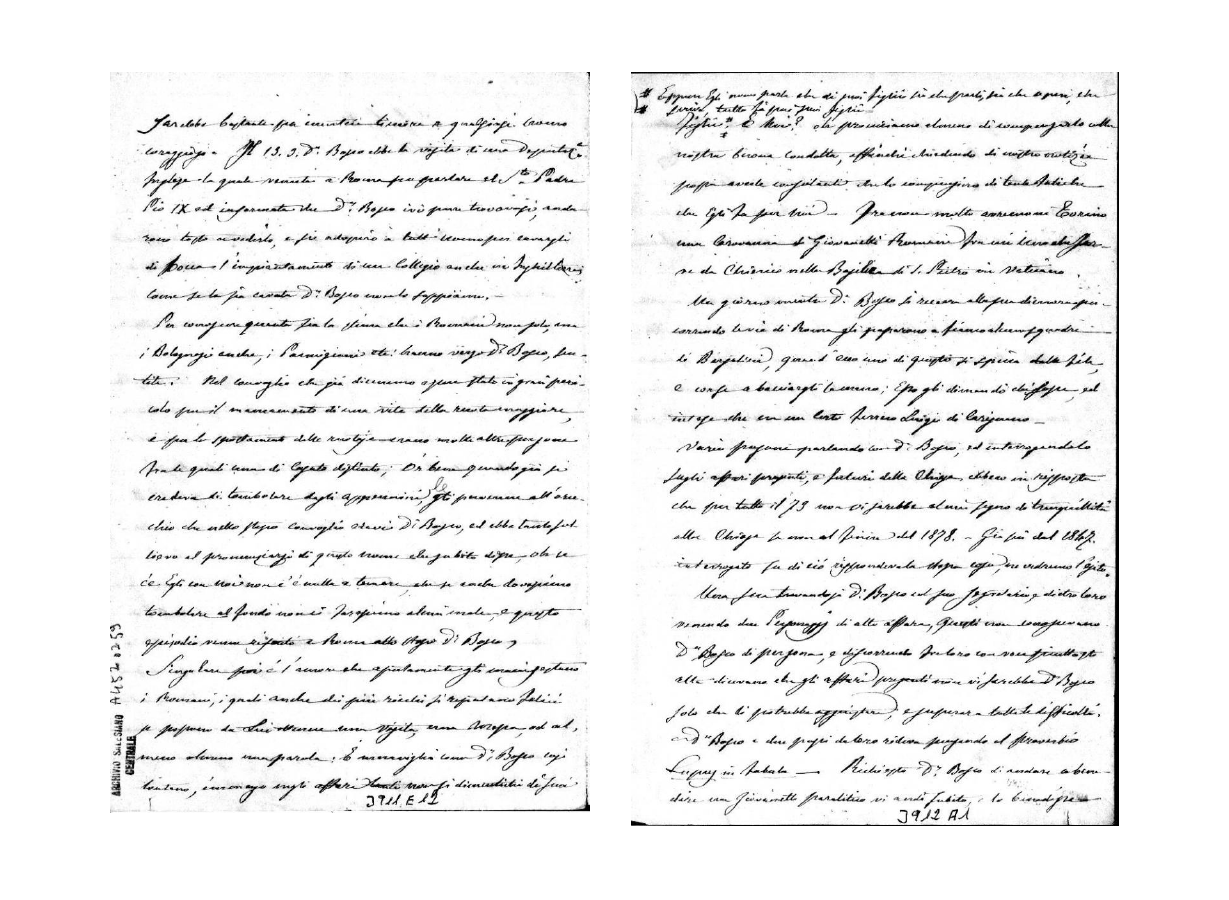 Sarebbe bastante per incutere timore a qualsiasi uomo
coraggioso. Il 13. 3. Dn Bosco ebbe la visita di una Deputaz.
Inglese la quale venuta a Roma per parlare al Sto Padre
Pio IX ed informata che Dn Bosco ivi pure trovavasi, anda
rono tosto a vederlo, e si adoprò a tutt'uomo per cavargli
di bocca l'impiantamento di un Collegio anche in Inghilterra,
Come se la sia cavata Dn Bosco non lo sappiamo. -
Per conoscere quanta sia la stima che i Romani non solo, ma
i Bolognesi anche, i Parmigiani etc. hanno verso Dn Bosco, sen-
tite: Nel convoglio che già dicemmo essere stato in gran peri-
colo per il mancamento di una vite della ruota maggiore,
e per lo spostamento delle ruotaje erano molte altre persone
fra le quali una di Casato distinto; Or bene quando già si
credeva di tombolare dagli Appennini, gli pervenne all'orec
chio che nello stesso convoglio eravi Dn Bosco, ed ebbe tanto sol
lievo al pronunciarsi di questo nome che subito disse, oh se
c'è Egli con noi non c'è nulla a temere, che se anche dovessimo
tombolare al fondo non ci faressimo alcun male, e questo
episodio venne riferito a Roma allo stesso Dn Bosco,
Singolare poi è l'amore che apertamente gli manifestano
i Romani, i quali anche dei più ricchi si reputano felici
se possono da Lui ottenere una visita, una, od al,
meno almeno una parola. È meraviglia come Dn Bosco così
lontano, immerso negli affari non si dimentichi de' suoi
J911 E12
ARCHIVIO SALESIANO
CENTRALE
A4520259
# Eppure Egli non parla che di suoi figli sia che parli, sia che operi, che
# scriva, tutto fa pei suoi figli
figli # E Noi? oh procuriamo almeno di compensarlo colla
nostra buona condotta, affinché chiedendo di nostre notizie
possa averle consolanti che lo compensino di tante fatiche
che Egli fa per Noi - Fra non molto verranno a Torino
una Carovana di Giovanetti Romani fra cui uno che ser-
ve da Chierico nella Basilica di S. Pietro in Vaticano.
Un giorno mentre Dn Bosco si recava alla sua dimora per-
correndo le vie di Roma gli passarono a fianco alcune squadre
di Bersaglieri, quand'ecco uno di questi si spicca dalle file,
e corse a baciargli la mano; Esso gli dimandò chi fosse, ed
intese che era un certo Luigi di Carignano -
Varie persone parlando con Dn Bosco, ed interrogandolo
sugli affari presenti, e futuri della Chiesa ebbero in risposta
che per tutto il 73 non vi sarebbe alcun segno di tranquillità
alla Chiesa se non al finire del 1878. - Già più dal 1867.
interrogato su di ciò rispondeva la stessa cosa, ne vedremo l'esito.
Una sera trovandosi Dn Bosco col suo Segretario, e dietro loro
venendo due Personaggi di alto affare, Questi non conoscevano
Dn Bosco di persona, e discorrendo fra loro con voce piuttosto
alta dicevano che gli affari presenti non vi sarebbe Dn Bosco
solo che li potrebbe aggiustare, e superar a tutte le difficoltà.
e Dn Bosco a due passi da loro rideva pensando al proverbio
Lupus in fabula - Richiesto Dn Bosco di andare a bene
dire un giovanetto paralitico vi andò subito, lo benedisse
J912 A1